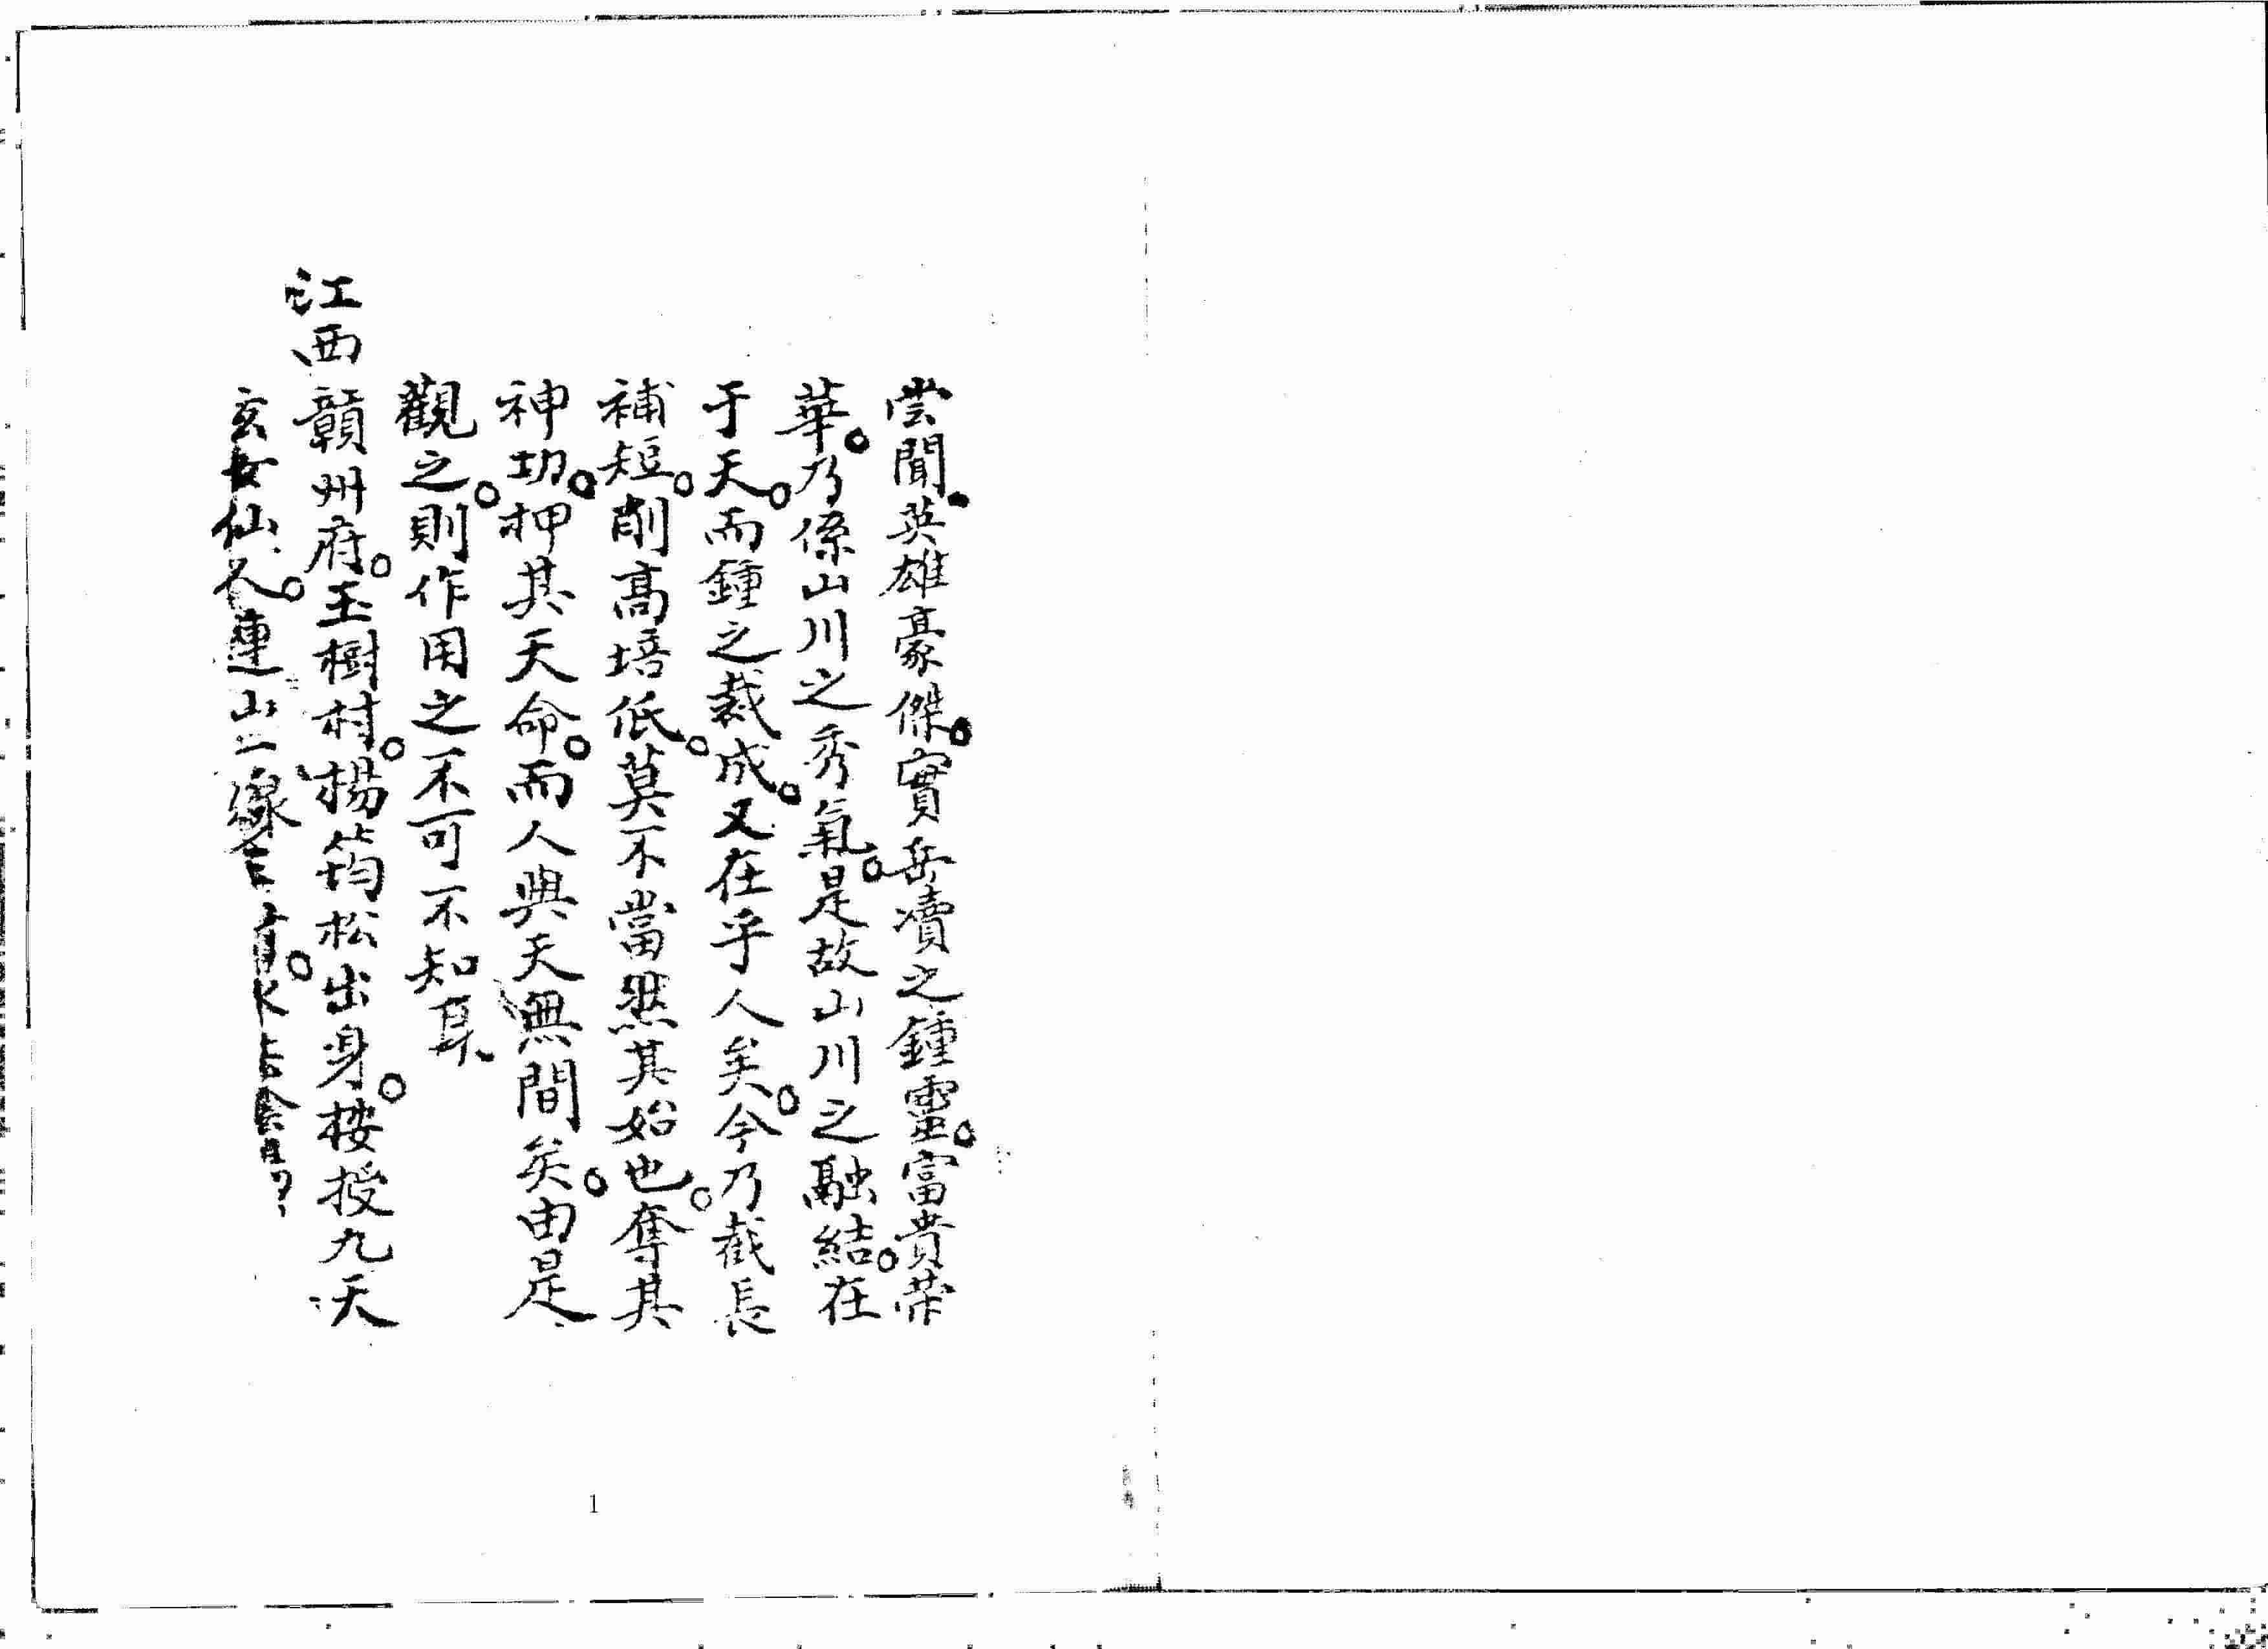 嘗聞英雄豪傑。實岳瀆之鍾靈。富貴荣
華。乃係山川之秀氣。是故山川之融結。在
于天。而鍾之裁成。又在乎人矣。今乃截長
補短。削高培低。莫不當然其始也。奪其
神功。押其天命。而人與天無間矣。由是
觀之。則作用之不可不知耳
江西贛州府。玉樹村。楊筠松出身。接授九天
玄女仙人。連山二
1